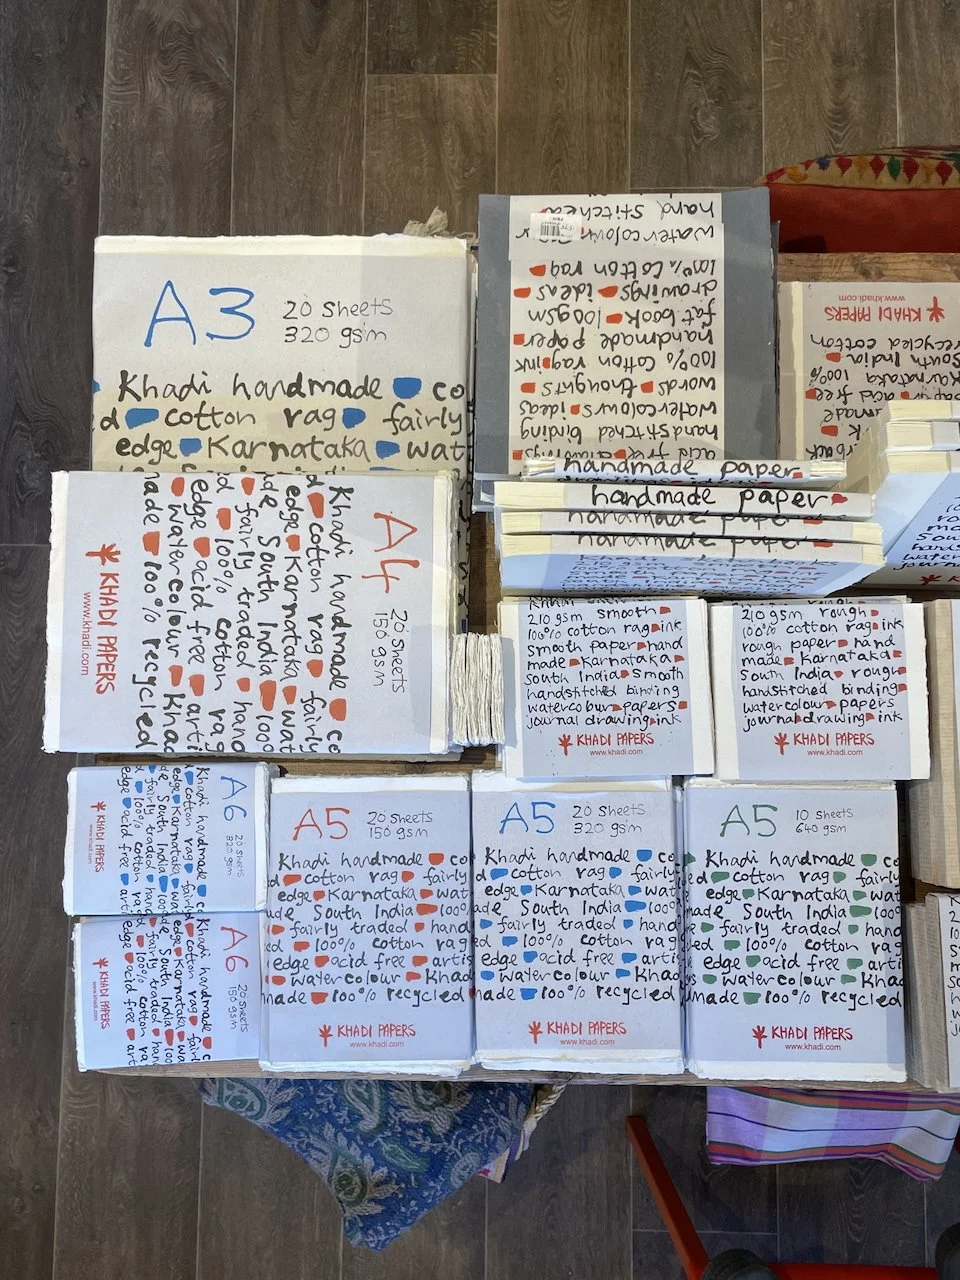 A3
20 sheets
320 gsm
Khadi handmade co
d cotton rag fairly
edge Karnataka wat
hand stitched
watercolour
100% cotton rag
drawings ideas
fat book 100gsm
handmade paper
100% cotton rag ink
words thoughts
watercolours ideas
handstitched binding
acid free drawings
KHADI PAPERS
www.khadi.com
recycled cotton
South India
Karnataka 100%
acid free
handmade paper
handmade paper
handmade paper
handmade paper
A4
20 sheets
150 gsm
Khadi handmade co
d cotton rag fairly
edge Karnataka wat
de South India 100
fairly traded hand
100% cotton rag
edge acid free arti
watercolour Khad
made 100% recycled
KHADI PAPERS
www.khadi.com
210 gsm smooth
100% cotton rag ink
smooth paper hand
made Karnataka
south india smooth
handstitched binding
watercolour papers
journal drawing ink
KHADI PAPERS
www.khadi.com
210 gsm rough
100% cotton rag ink
rough paper hand
made Karnataka
south india rough
handstitched binding
watercolour papers
journal drawing ink
KHADI PAPERS
www.khadi.com
A6
20 sheets
320 gsm
Khadi handmade c
cotton rag fairl
edge Karnataka wa
de South India 100
fairly traded han
100% cotton ra
edge acid free art
KHADI PAPERS
www.khadi.com
A6
20 sheets
150 gsm
Khadi handmade c
cotton rag fairl
edge Karnataka wa
de South India 100
fairly traded han
100% cotton ra
edge acid free art
KHADI PAPERS
www.khadi.com
A5
20 sheets
150 gsm
Khadi handmade co
d cotton rag fairly
edge Karnataka wat
ade South India 100%
fairly traded hand
ed 100% cotton rag
edge acid free artis
watercolour Khad
made 100% recycled
KHADI PAPERS
www.khadi.com
A5
20 sheets
320 gsm
Khadi handmade co
d cotton rag fairly
edge Karnataka wat
ade South India 100%
fairly traded hand
ed 100% cotton rag
edge acid free artis
watercolour Khad
made 100% recycled
KHADI PAPERS
www.khadi.com
A5
10 sheets
640 gsm
Khadi handmade co
d cotton rag fairly
edge Karnataka wat
made South India 100
fairly traded hand
d 100% cotton rag
edge acid free arti
watercolour Kha
made 100% recycled
KHADI PAPERS
www.khadi.com